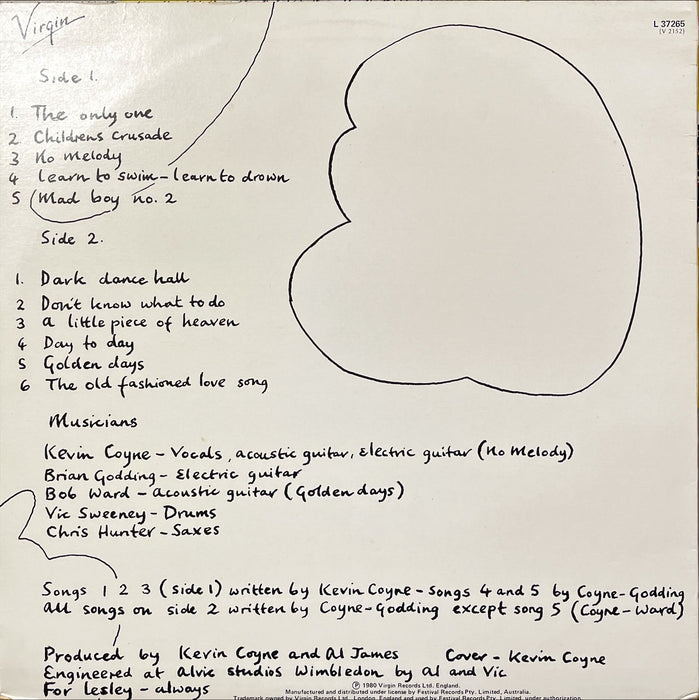 Virgin
L 37265
(V 2152)
Side 1.
1. The only one
2 Childrens crusade
3 No Melody
4 learn to swim - learn to drown
5 (Mad boy no. 2
Side 2.
1. Dark dance hall
2 Don't know what to do
3 a little piece of heaven
4 Day to day
5 Golden days
6 The old fashioned love song
Musicians
Kevin Coyne - Vocals, acoustic guitar, Electric guitar (No Melody)
Brian Godding - Electric guitar
Bob Ward - acoustic guitar (Golden days)
Vic Sweeney - Drums
Chris Hunter - Saxes
Songs 1 2 3 (side 1) written by Kevin Coyne - songs 4 and 5 by Coyne - Godding
all songs on side 2 written by Coyne - Godding except song 5 (Coyne - Ward)
Produced by Kevin Coyne and Al James Cover - Kevin Coyne
Engineered at Alvic studios Wimbledon by Al and Vic
For Lesley - always
℗ 1980 Virgin Records Ltd. England.
Manufactured and distributed under license by Festival Records Pty. Limited, Australia.
Trademark owned by Virgin Records Ltd., London, England and used by Festival Records Pty. Limited, under authorization.